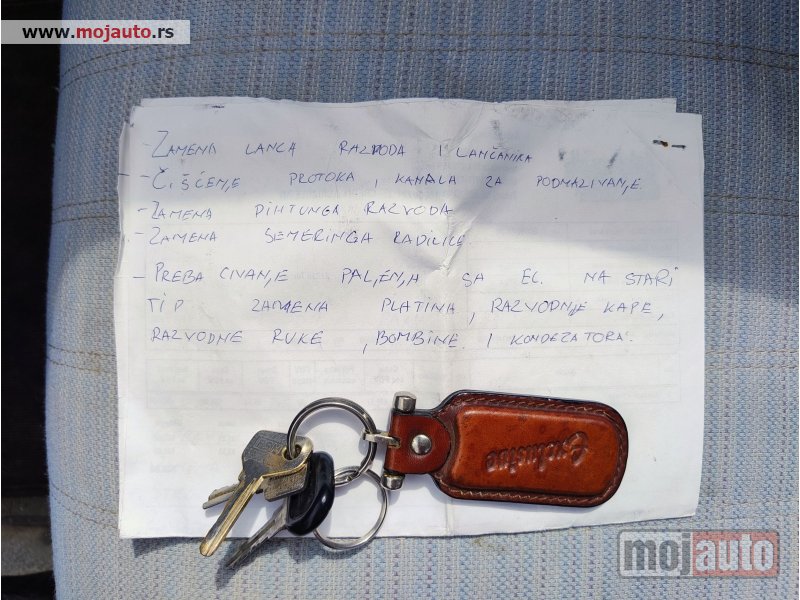 www.mojauto.rs
- ZAMENA LANCA RAZVODA I LANČANIKA
- ČIŠĆENJE PROTOKA I KANALA ZA PODMAZIVANJE
- ZAMENA DIHTUNGA RAZVODA
- ZAMENA SEMERINGA RADILICE
- PREBACIVANJE PALJENJA SA EL. NA STARI
TIP ZAMENA PLATINA, RAZVODNE KAPE,
RAZVODNE RUKE, BOMBINE I KONDEZATORA.
Exclusive
mojauto